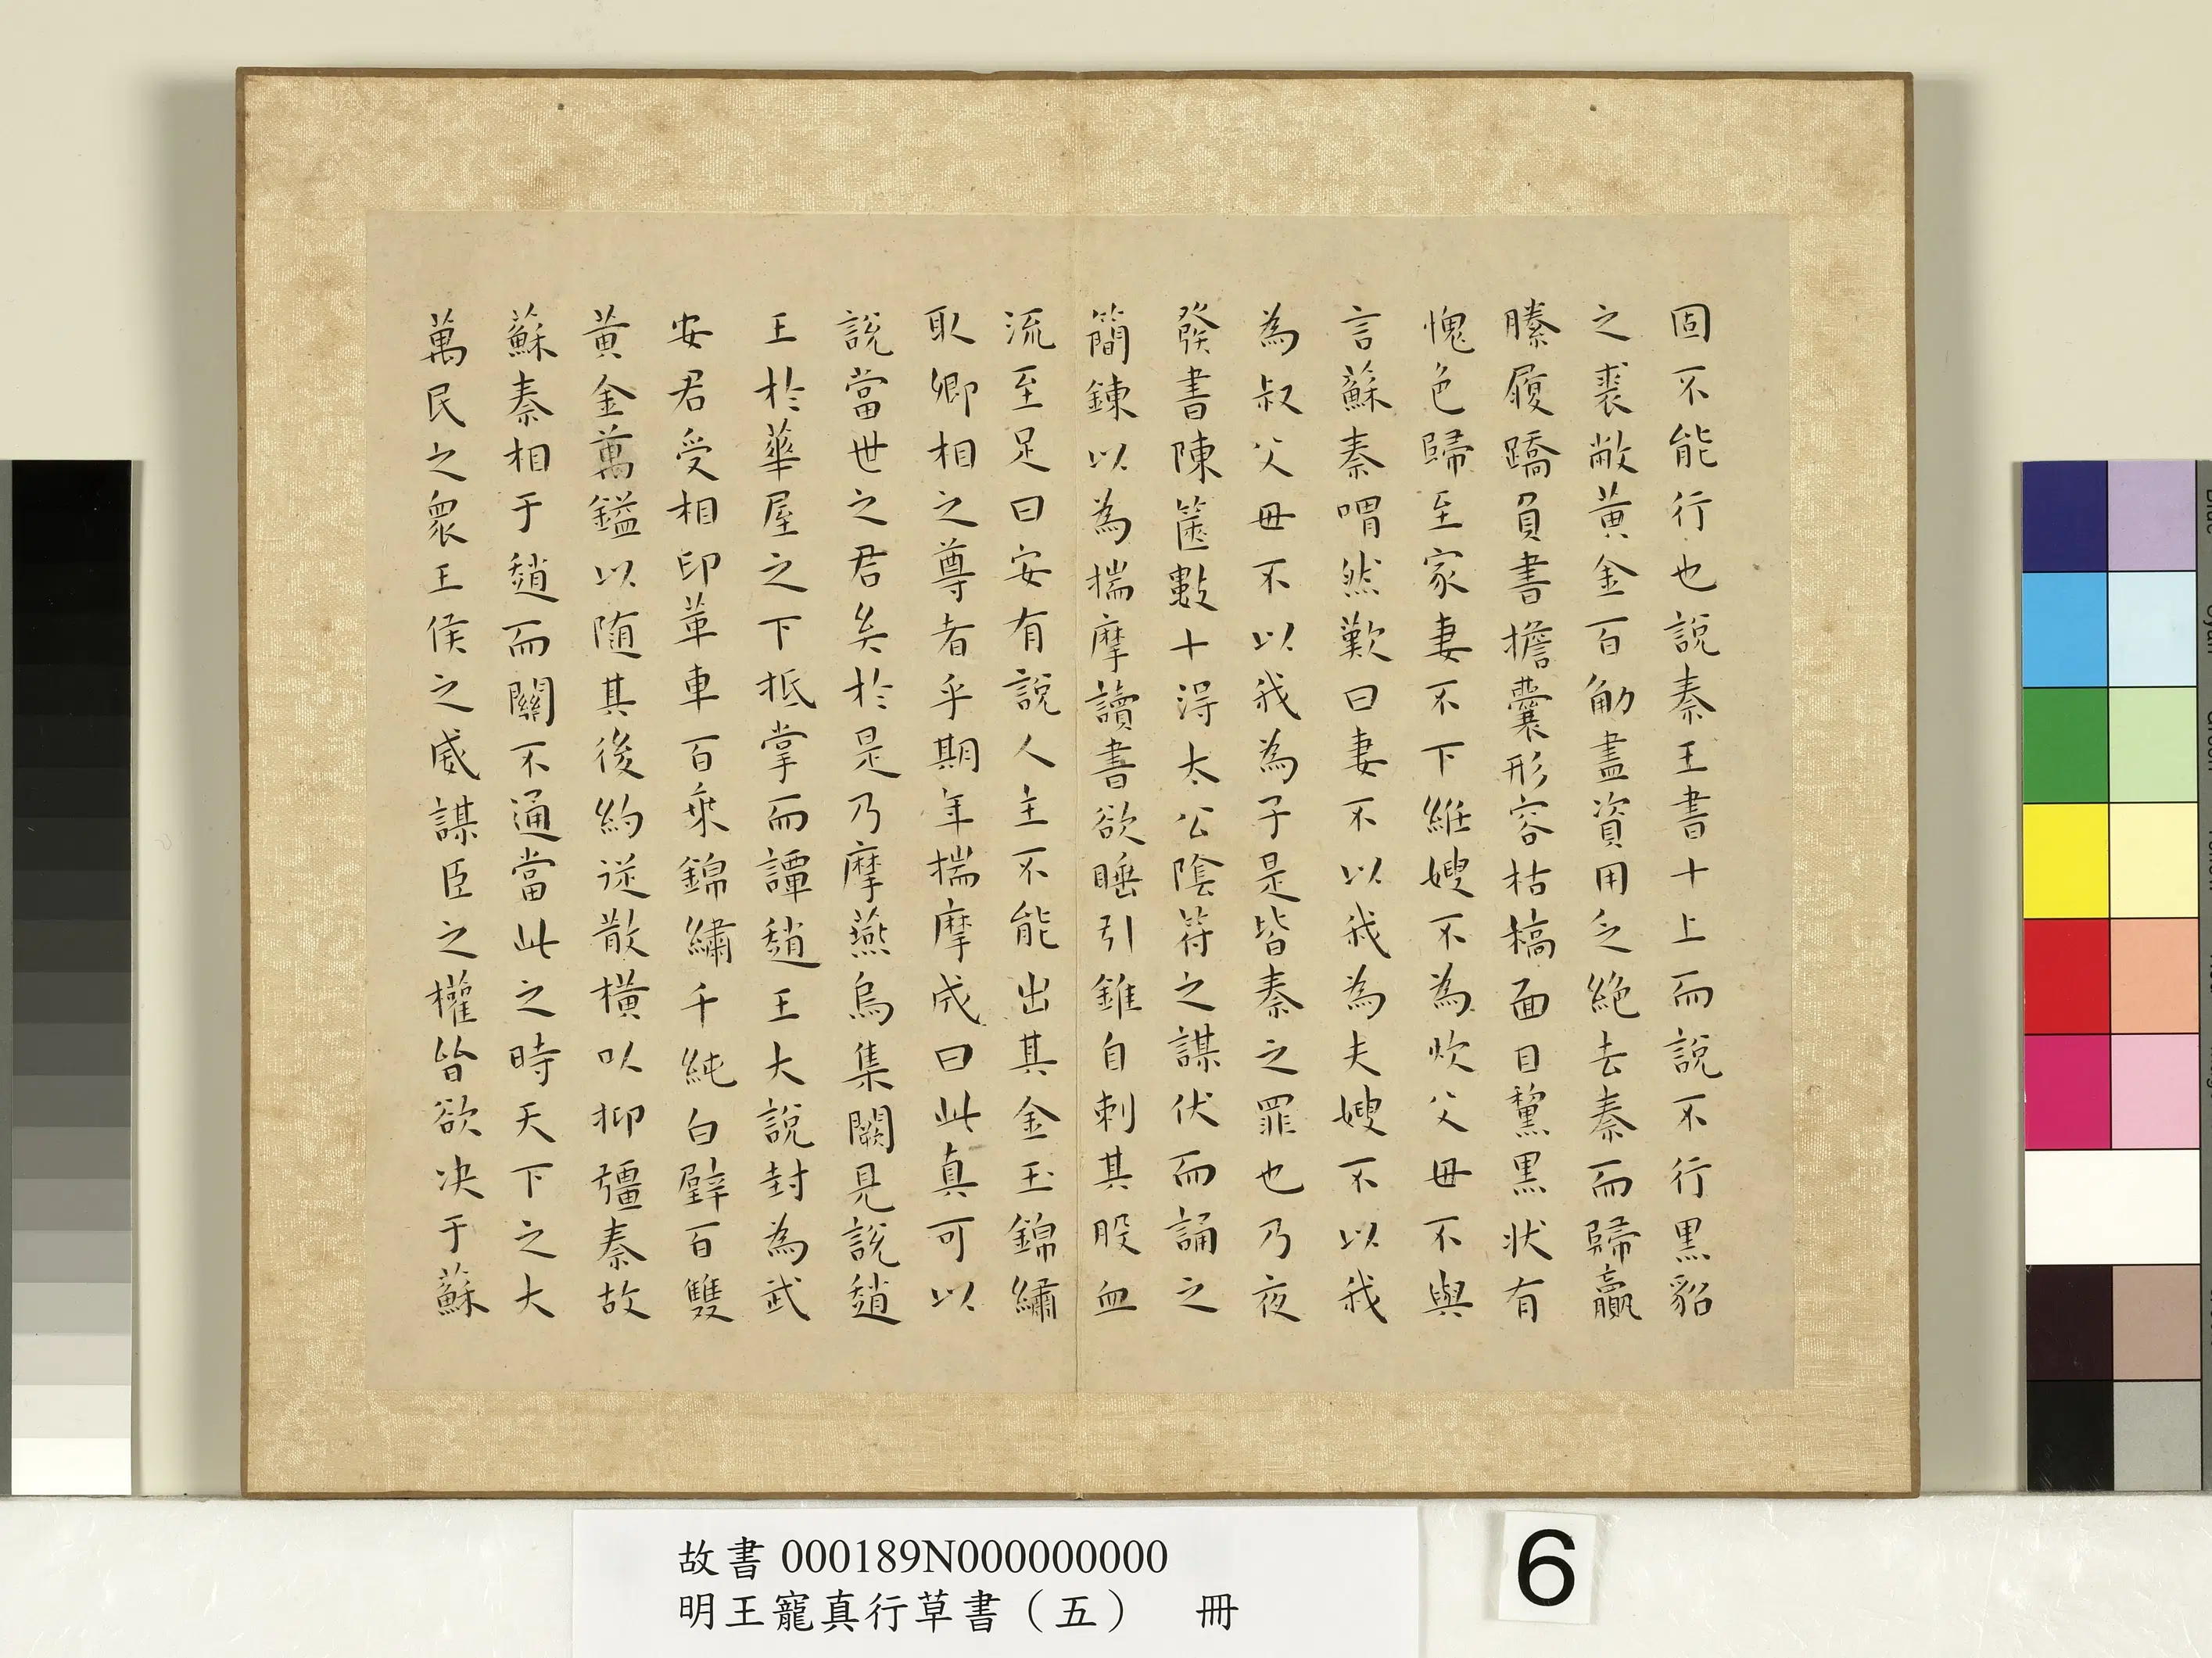 固不能行也說秦王書十上而說不行黑貂
之裘敝黃金百觔盡資用乏絕去秦而歸羸
縢履蹻負書擔囊形容枯槁面目黧黑狀有
愧色歸至家妻不下紝嫂不為炊父毋不與
言蘇秦喟然歎曰妻不以我為夫嫂不以我
為叔父毋不以我為子是皆秦之罪也乃夜
發書陳篋數十得太公陰符之謀伏而誦之
簡鍊以為揣摩讀書欲睡引錐自刺其股血
流至足曰安有說人主不能出其金玉錦繡
取卿相之尊者乎期年揣摩成曰此真可以
說當世之君矣於是乃摩燕烏集闕見說趙
王於華屋之下抵掌而譚趙王大說封為武
安君受相印革車百乘錦繡千純白璧百雙
黃金萬鎰以隨其後約從散橫以抑彊秦故
蘇秦相于趙而關不通當此之時天下之大
萬民之眾王侯之威謀臣之權皆欲決于蘇
故書000189N000000000
明王寵真行草書（五） 冊
6